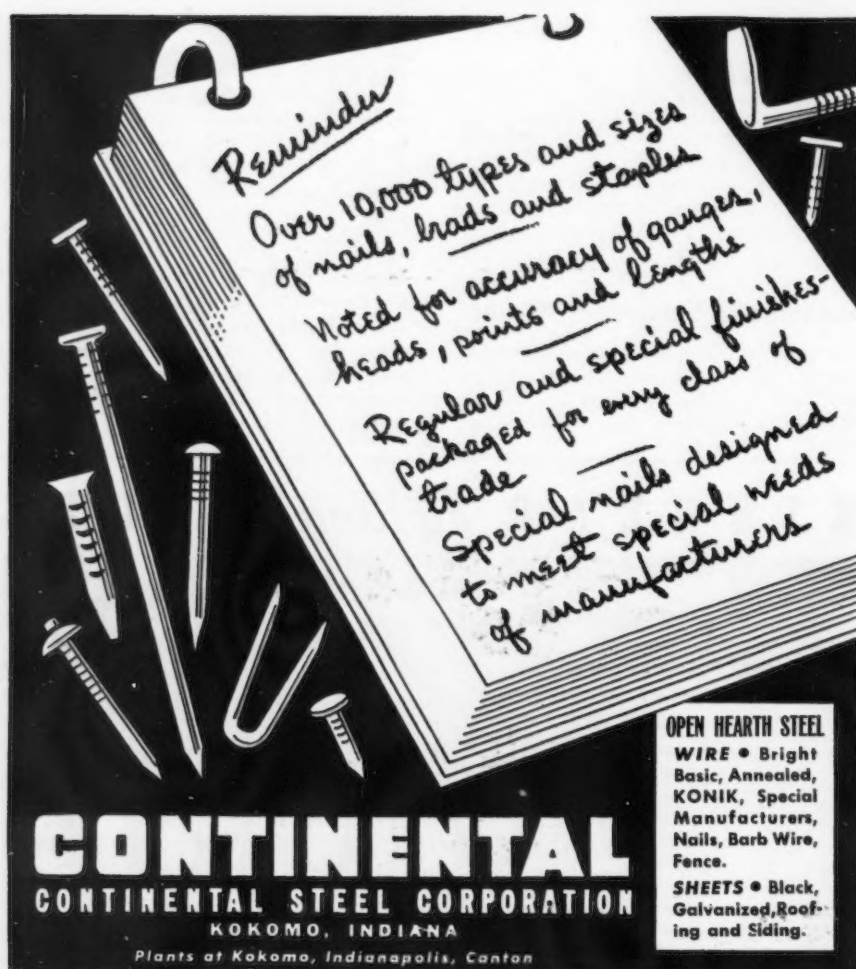 Reminder
Over 10,000 types and sizes
of nails, brads and staples
Noted for accuracy of gauges,
heads, points and lengths
Regular and special finishes-
packaged for every class of
trade
Special nails designed
to meet special needs
of manufacturers
OPEN HEARTH STEEL
WIRE • Bright
Basic, Annealed,
KONIK, Special
Manufacturers,
Nails, Barb Wire,
Fence.
SHEETS • Black,
Galvanized,Roof-
ing and Siding.
CONTINENTAL
CONTINENTAL STEEL CORPORATION
KOKOMO, INDIANA
Plants at Kokomo, Indianapolis, Canton